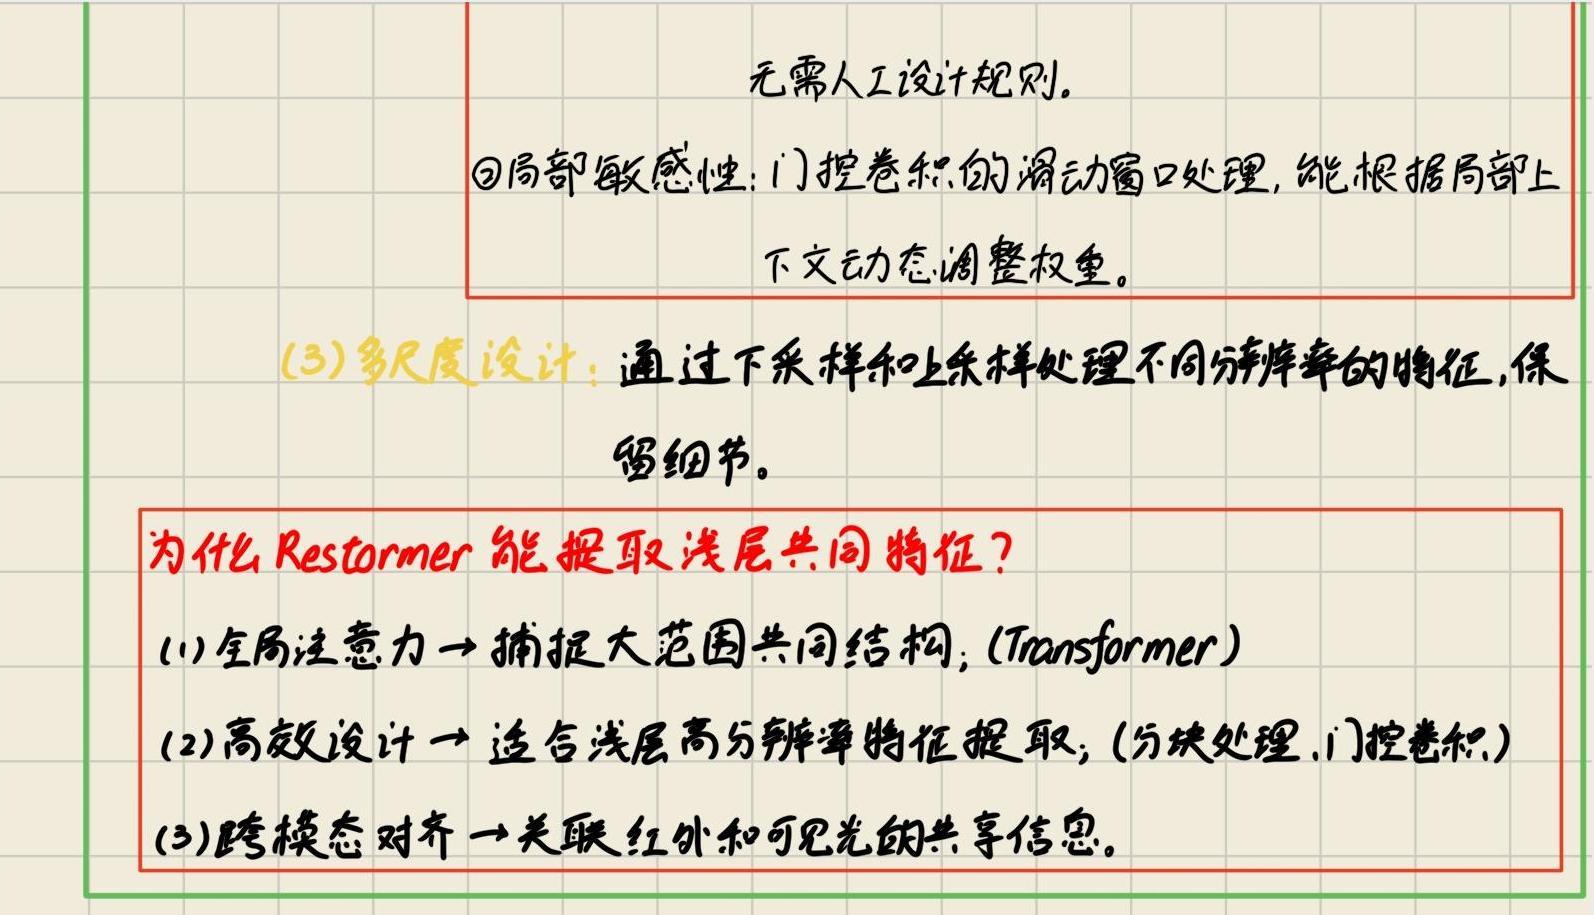 无需人工设计规则。
②局部敏感性：门控卷积的滑动窗口处理，能根据局部上
下文动态调整权重。
(3)多尺度设计：通过下采样和上采样处理不同分辨率的特征，保
留细节。
为什么Restormer能提取浅层共同特征？
(1)全局注意力→捕捉大范围共同结构；(Transformer)
(2)高效设计→适合浅层高分辨率特征提取；(分块处理、门控卷积)
(3)跨模态对齐→关联红外和可见光的共享信息。